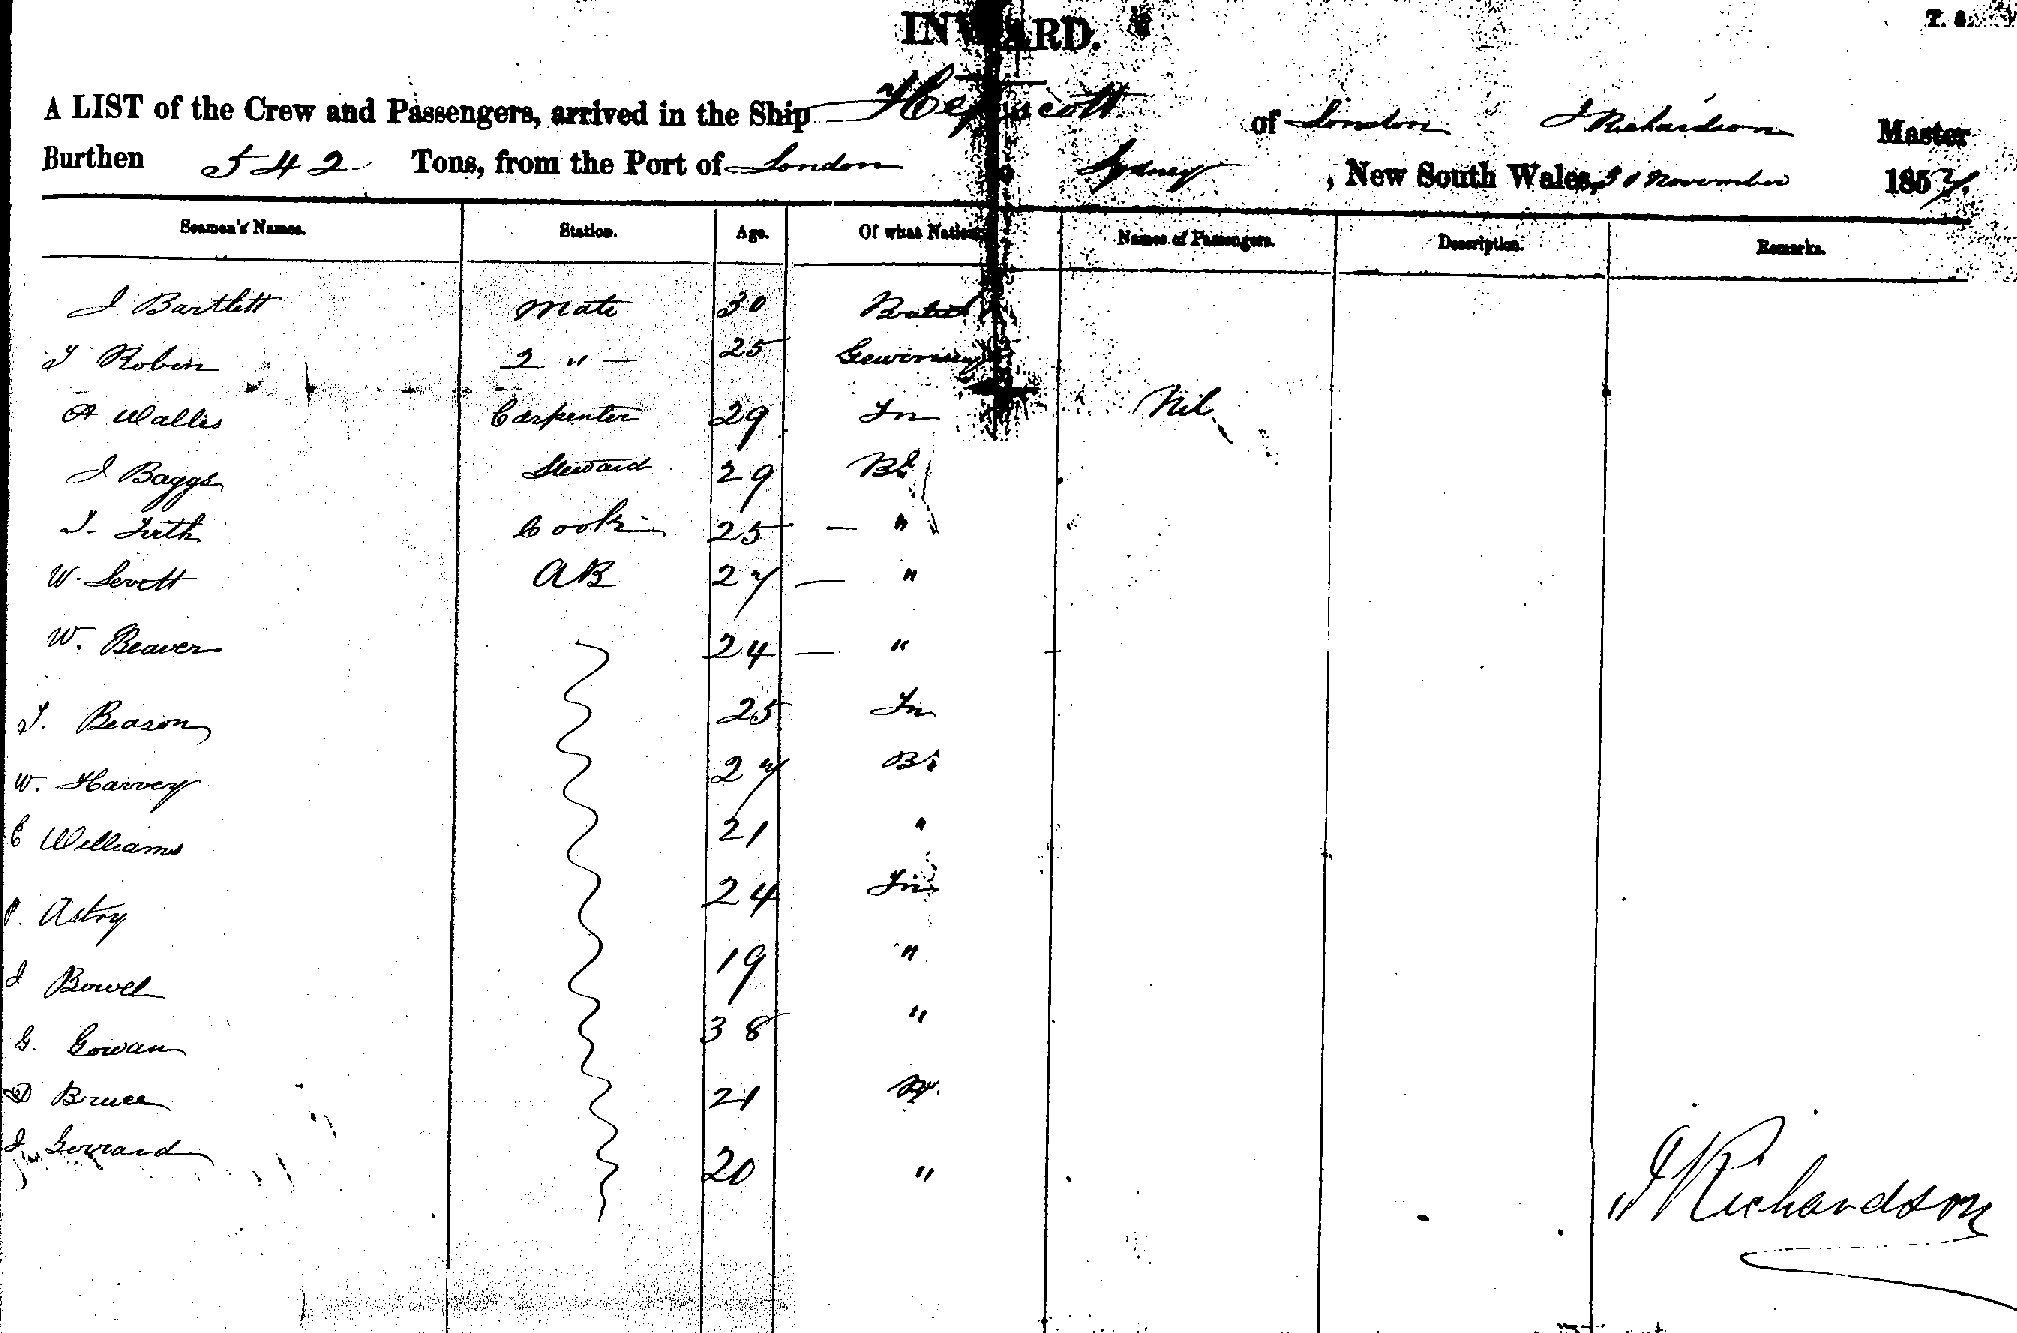 INWARD.
T. 3.
A LIST of the Crew and Passengers, arrived in the Ship Hepscott of London J Richardson Master
Burthen 542 Tons, from the Port of London to Sydney, New South Wales, November 1857.
Seamen's Names. Station. Age. Of what Nation. Names of Passengers. Description. Remarks.
J Bartlett Mate 30
J Robin 2 " — 25
A Wallis Carpenter 29 Nil
J Baggs Steward 29
Cook 25 — "
W. Levett AB 27 — "
W. Beaver 24 — "
T. Beason 25
W. Harvey 27 Br
C Williams 21 "
Astry 24
J Bowel 19 "
G. Gowan 38 "
D Bruce 21
J Gerrard 20 "
J Richardson